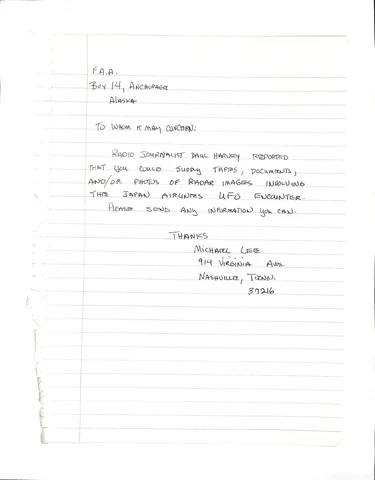 F.A.A.
Box 14, Anchorage
Alaska
To Whom it may concern:
Radio journalist Paul Harvey reported
that you could supply tapes, documents,
and/or photos of radar images involving
the Japan Airlines UFO encounter.
Please send any information you can.
Thanks
Michael Lee
914 Virginia Ave
Nashville, Tenn.
37216